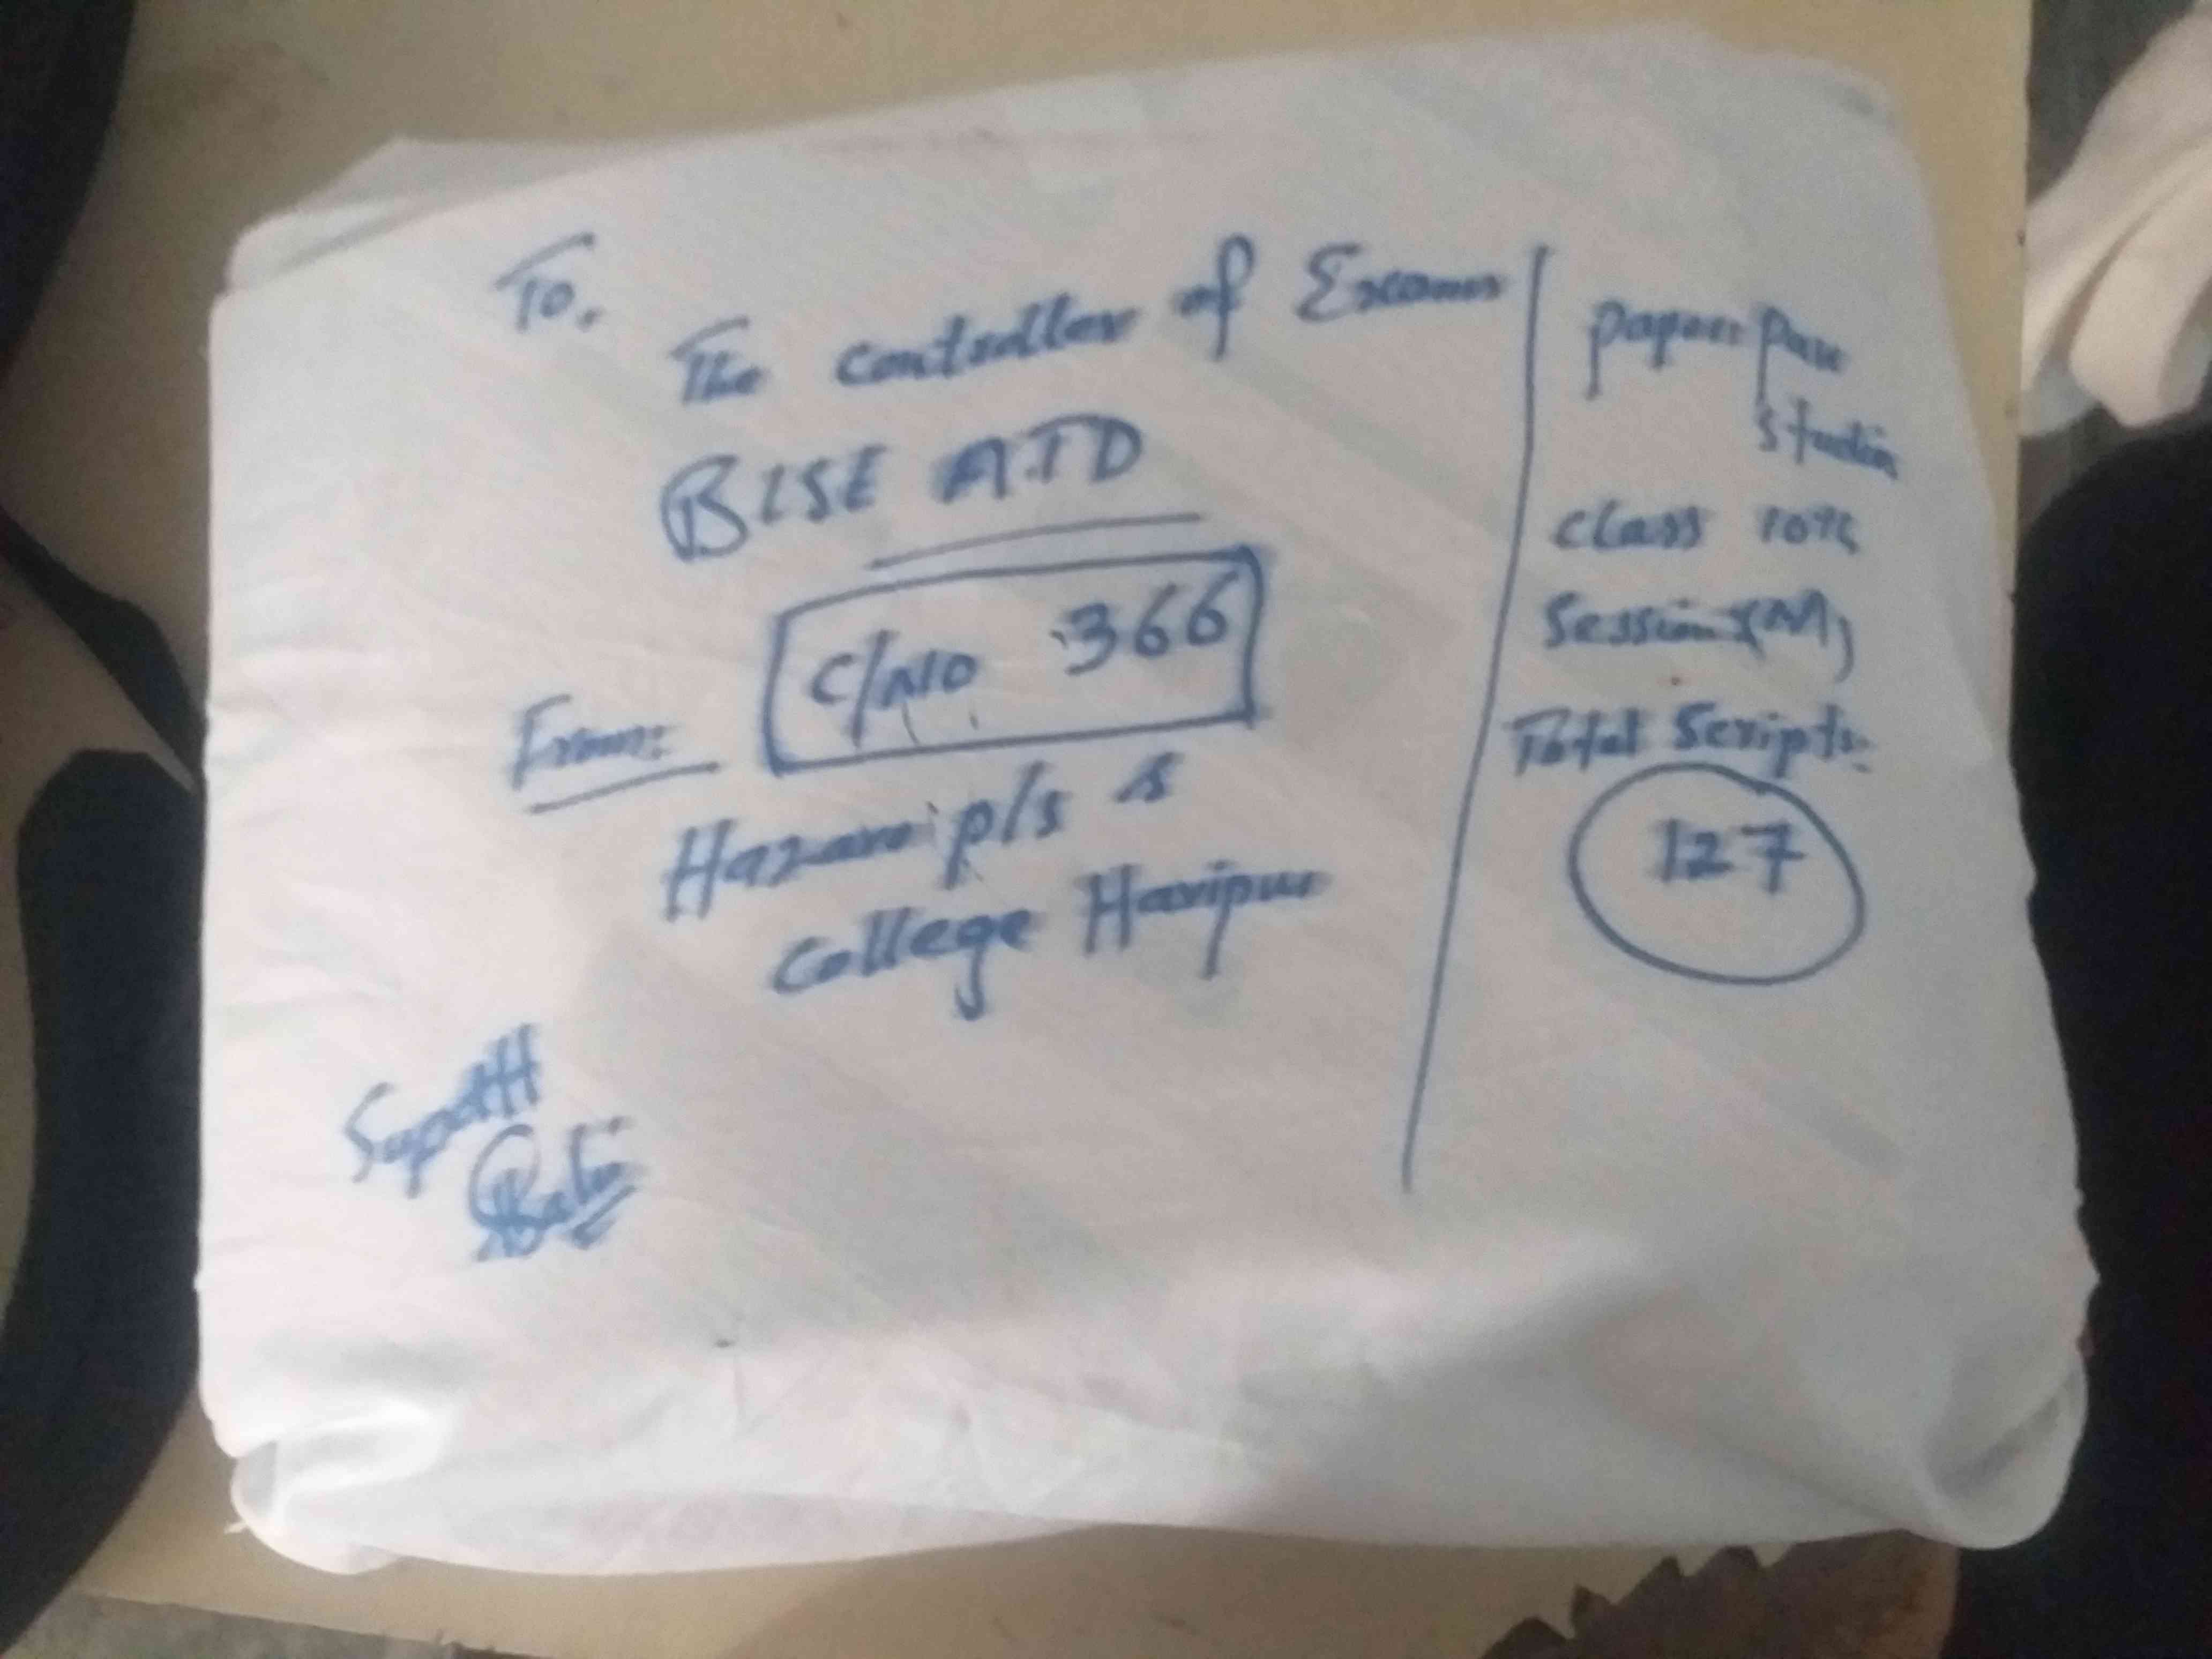 To,
The controller of Exams
BISE A.T.D
C/NO 366
From:
Hazara p/s &
College Haripur
Supdtt
paper: Pak
Studies
Class 10th
Session (M)
Total Scripts:
127